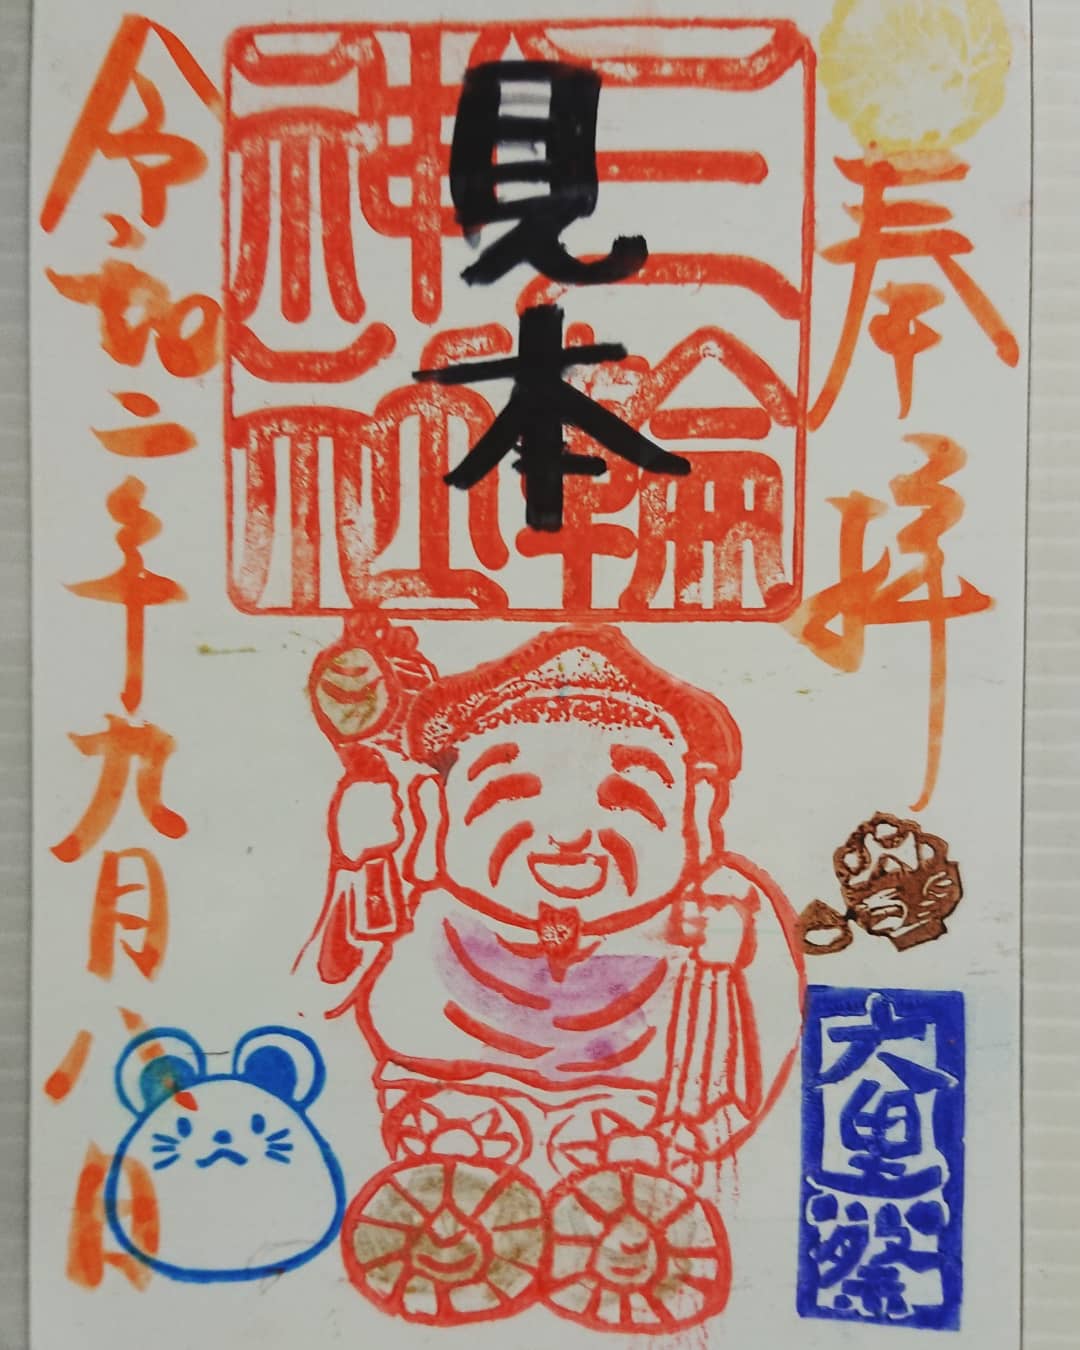 奉拝
三輪
神社
見本
大黒祭
令和二年九月八日